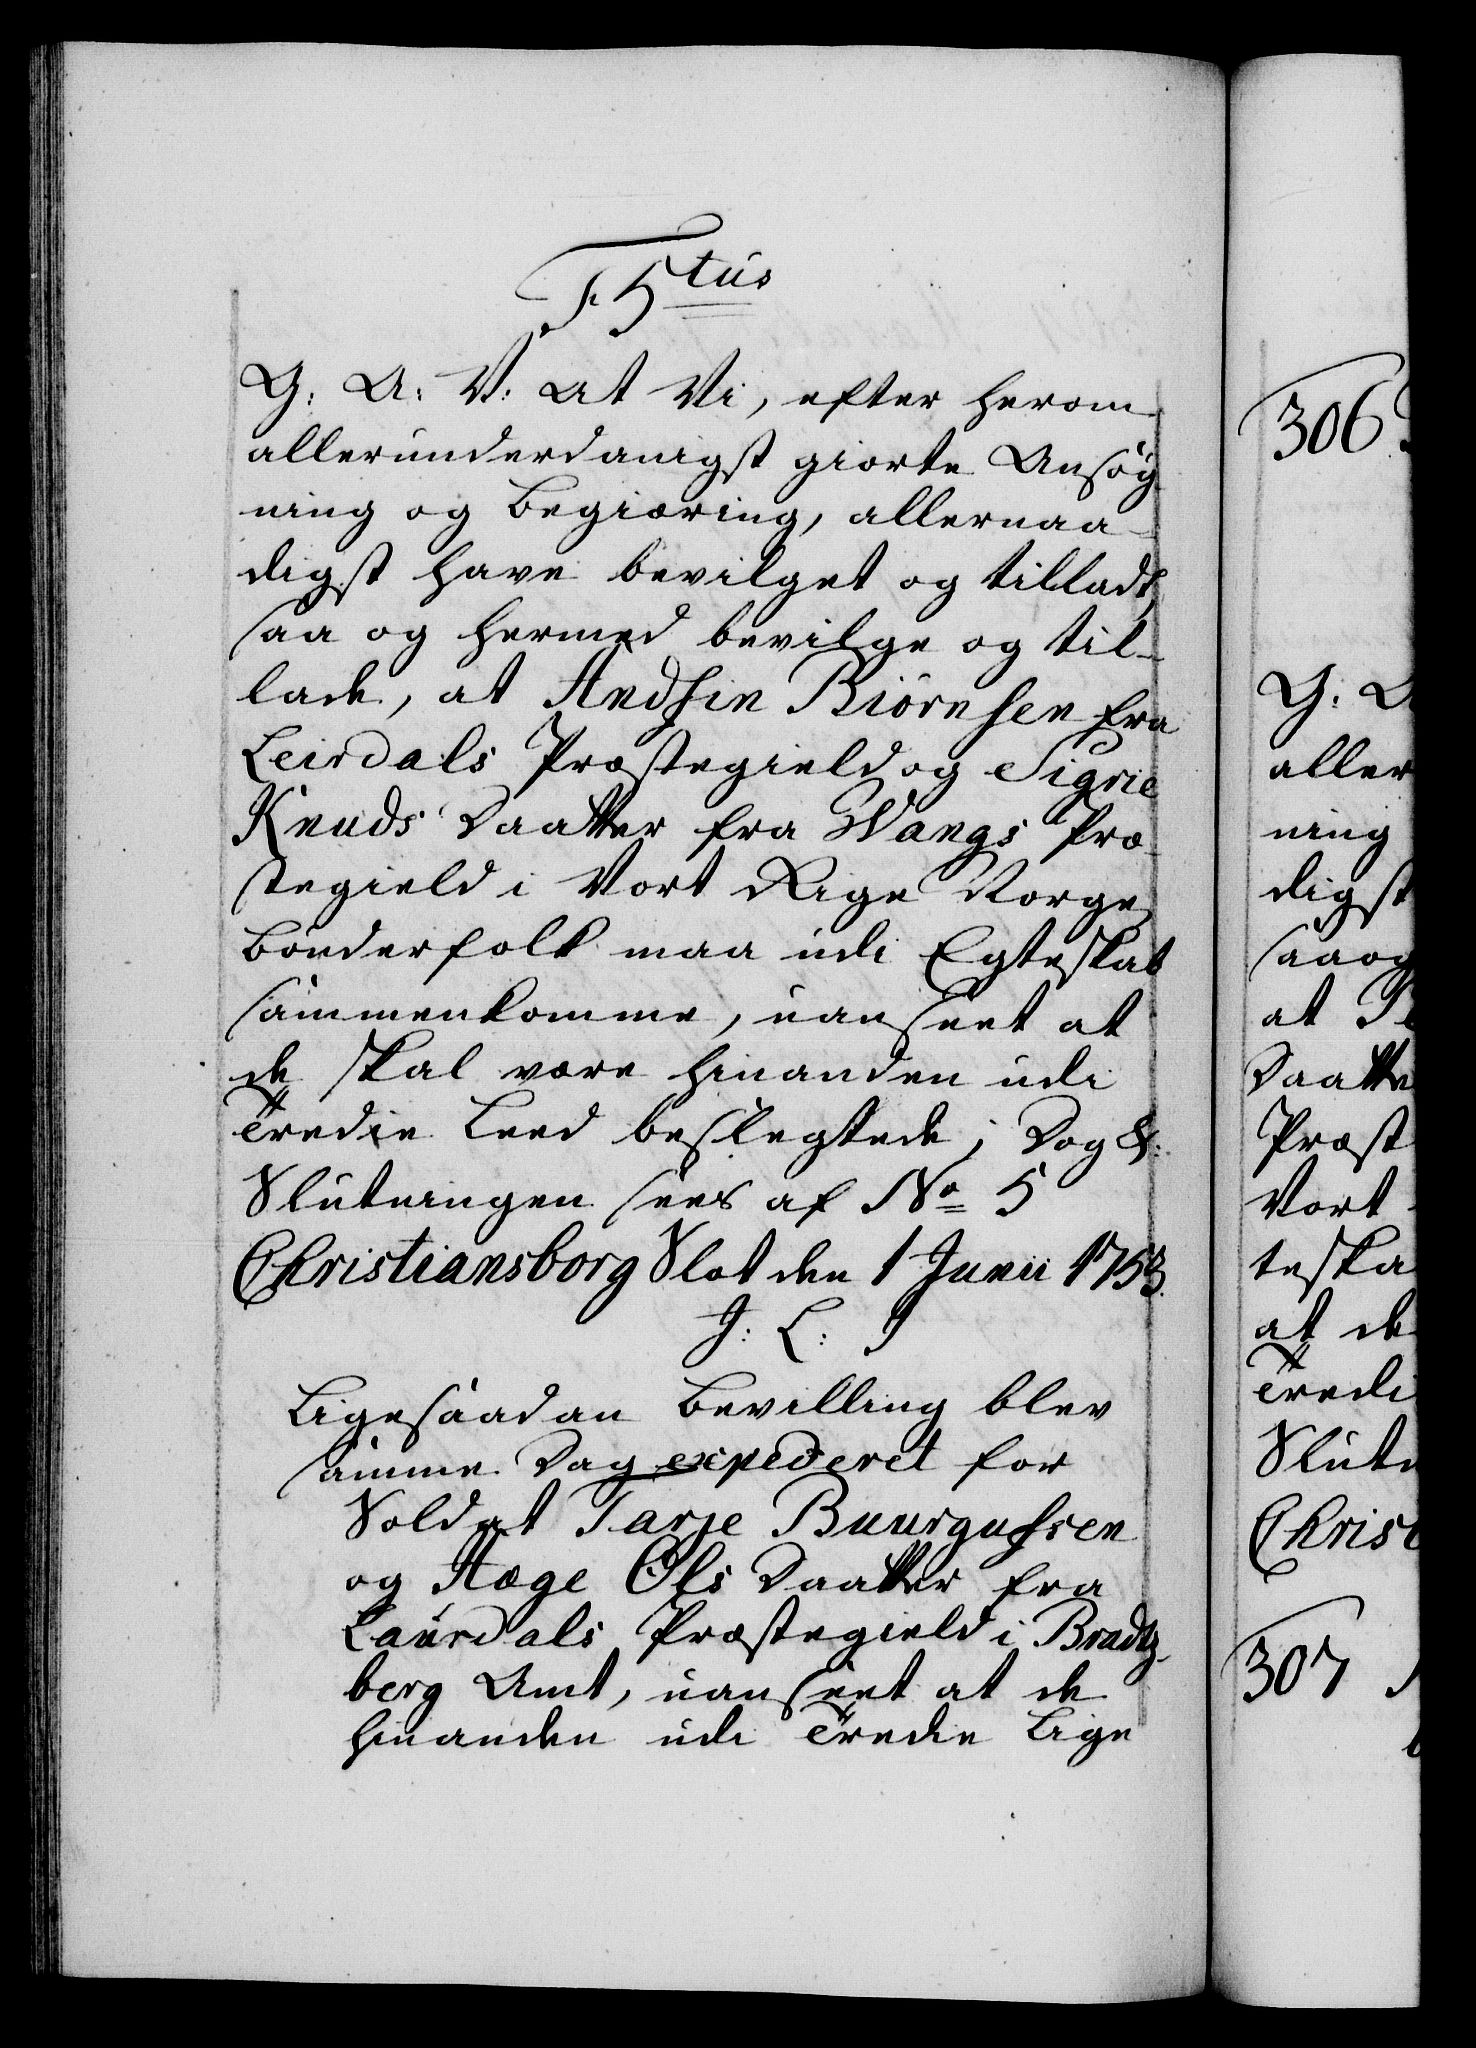 F. 5tus
G: A: V: At Vi, efter herom
allerunderdanigst giorte Ansøg
ning og Begiæring, allernaa-
digst have bevilget og tilladt,
saa og hermed bevilge og til-
lade, at Andfin Biörnsen fra
Leirdals Præstegield og Sigrie
Knuds Daatter fra Wangs Præ-
stegield i Vort Rige Norge,
Bönderfolk maa udi Egteskab
sammenkomme, uanseet at
de skal være hinanden udi
Tredie Leed beslegtede; Dog &:
Slutningen sees af No 5
Christiansborg Slot den 1 Junii 1753.
J: L: T
Ligesaadan Bevilling blev
samme Dag expederet for
Soldat Tarje Buurgufsen
og Hæge Ols Daatter fra
Laurdals Præstegield i Bradtz-
berg Amt, uanseet at de
hinanden udi Tredie Lige
306
G: A
aller
ning
digst
saa og
at
Daatte
Præst
Vort
teska
at de
Tredi
Slutn
Christ
307